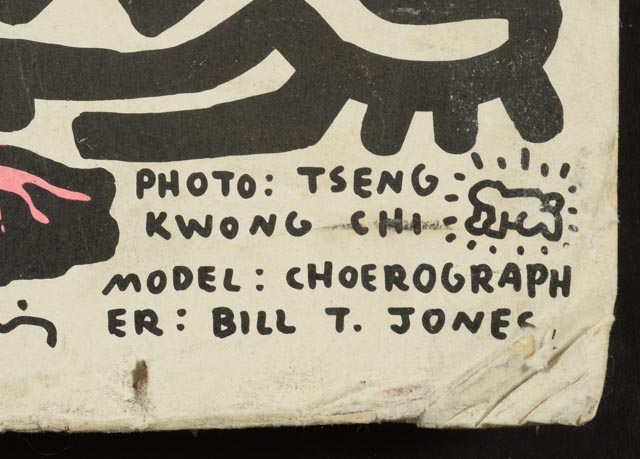 PHOTO: TSENG
KWONG CHI
MODEL: CHOEROGRAPH
ER: BILL T. JONES